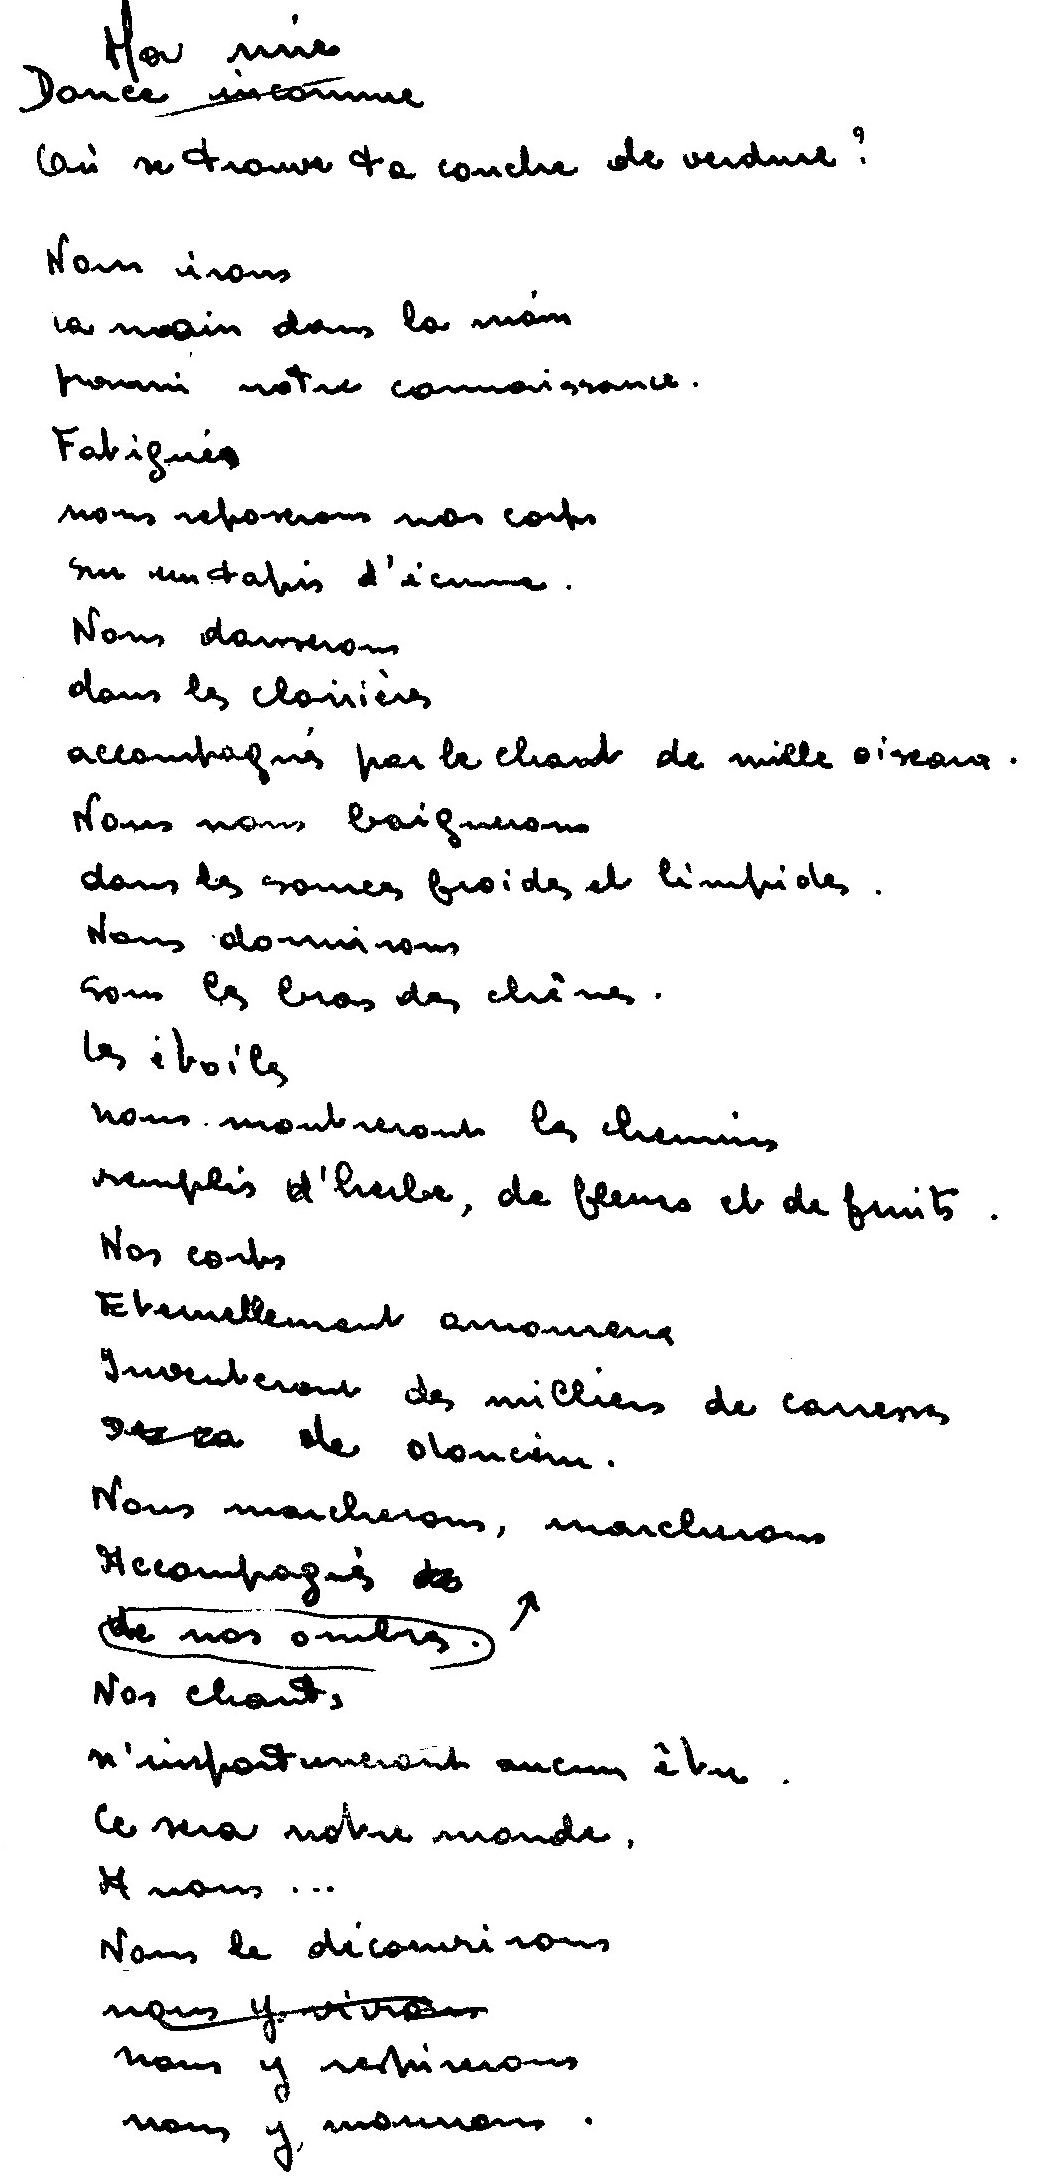 Ma mie
Douce inconnue
Où se trouve ta couche de verdure ?
Nous irons
la main dans la main
parmi notre connaissance.
Fatigués
nous reposerons nos corps
sur un tapis d'écume.
Nous danserons
dans les clairières
accompagnés par le chant de mille oiseaux.
Nous nous baignerons
dans les sources froides et limpides.
Nous dormirons
sous les bras des chênes.
Les étoiles
nous montreront les chemins
remplis d'herbe, de fleurs et de fruits.
Nos corps
Eternellement amoureux
Inventeront des milliers de caresses
de douceur.
Nous marcherons, marcherons
Accompagnés
de nos ombres.
Nos chants
n'importuneront aucun être.
Ce sera notre monde.
A nous ...
Nous le découvrirons
nous y vivrons
nous y respirerons
nous y mourrons.